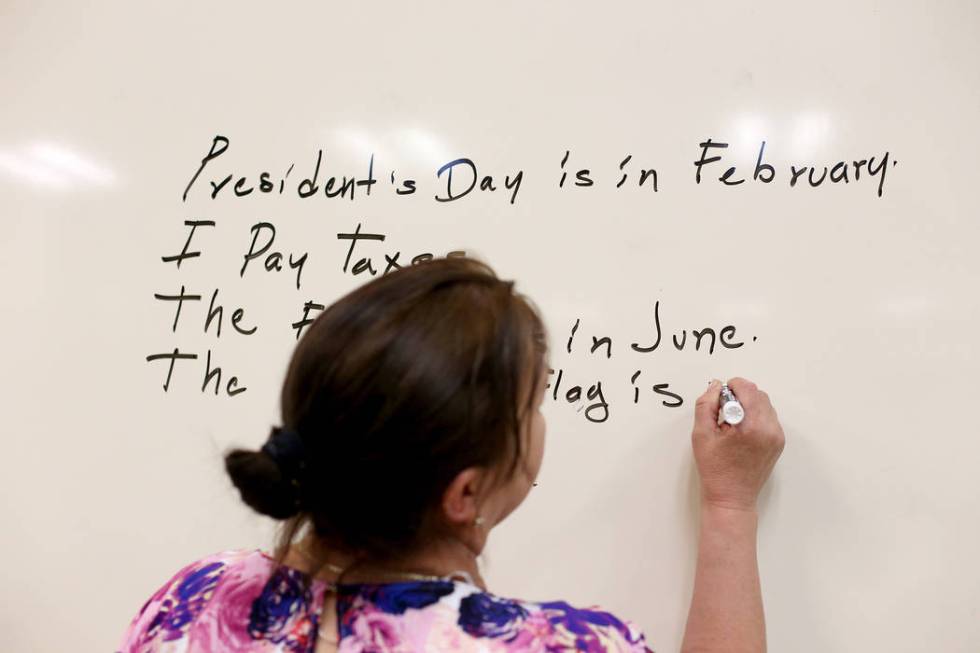 President's Day is in February.
I Pay Taxes
The in June.
The Flag is